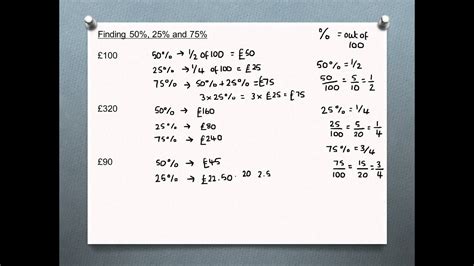 Finding 50%, 25% and 75%
£100
50% → 1/2 of 100 = £50
25% → 1/4 of 100 = £25
75% → 50% + 25% = £75
3 x 25% = 3 x £25 = £75
£320
50% → £160
25% → £80
75% → £240
£90
50% → £45
25% → £22.50 · 20 2.5
% = out of
100
50% = 1/2
50/100 = 5/10 = 1/2
25% = 1/4
25/100 = 5/20 = 1/4
75% = 3/4
75/100 = 15/20 = 3/4